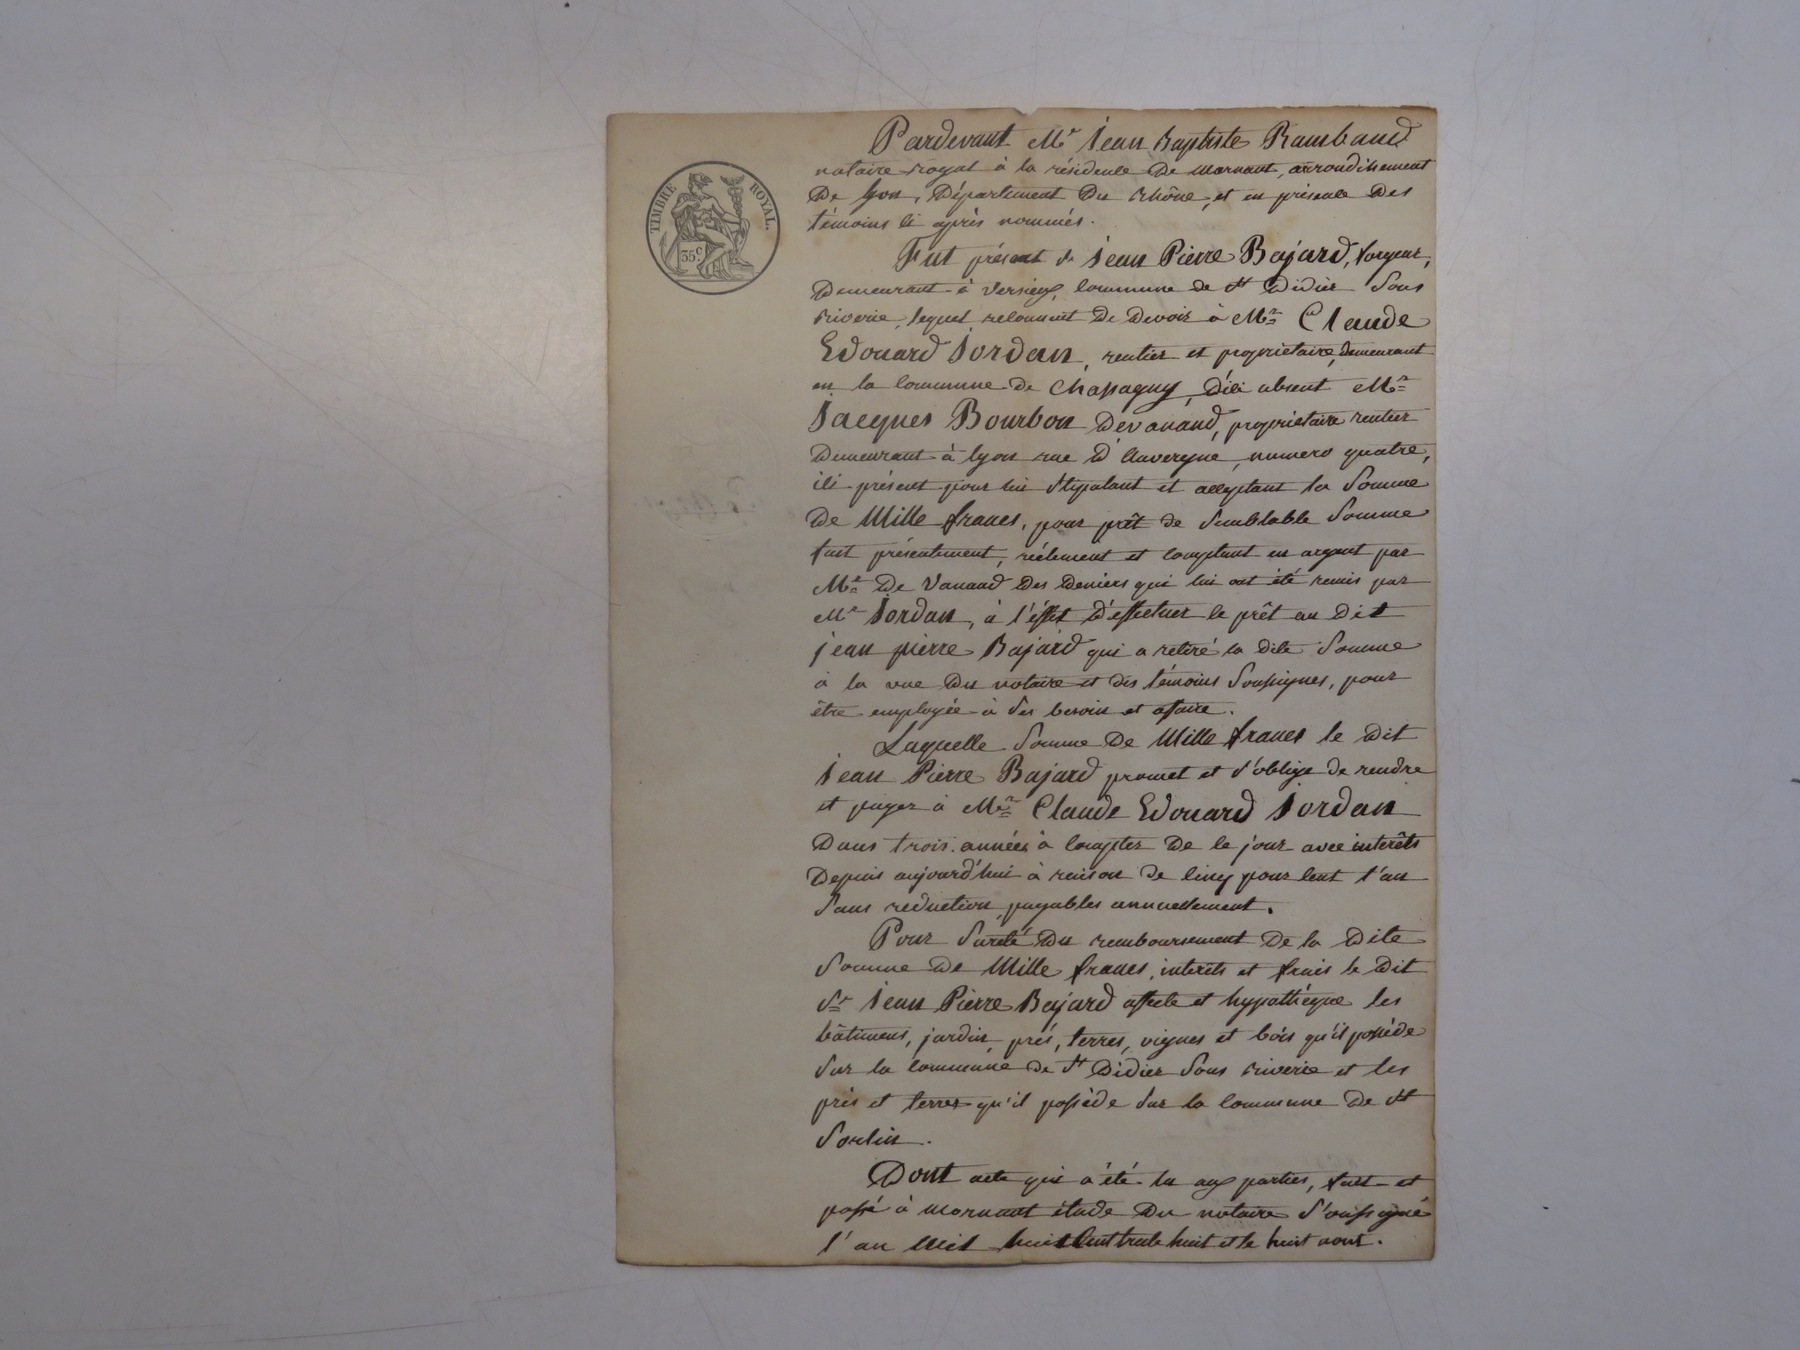 TIMBRE ROYAL.
35c
Pardevant Me Jean Baptiste Rambaud
notaire royal à la résidence De Mornant, arrondissement
De Lyon, Département Du Rhône, et en présence Des
témoins ci après nommés.
Fut présent Sr Jean Pierre Bajard, forgeur,
Demeurant à Versieux, Commune de St Didier Sous
riverie, lequel reconnait De Devoir à Mr Claude
Edouard Jordan, rentier et proprietaire, demeurant
en la Commune de Chassagny, D'ici absent Mr
Jacques Bourbon Devanand, proprietaire rentier
Demeurant à Lyon rue D'Auvergne, numero quatre,
ici présent pour lui Stipulant et acceptant la Somme
De Mille francs, pour prêt de Semblable Somme
fait présentement, réelement et comptant en argent par
Mr De Vanand Des Deniers qui lui ont été remis par
Mr Jordan, à l'éffet D'effectuer le prêt au Dit
jean pierre Bajard qui a retiré la dite Somme
à la vue Du notaire et des témoins Soussignés, pour
être employée à Ses besoin et afaire.
Laquelle Somme De Mille francs le Dit
Jean Pierre Bajard promet et S'oblige de rendre
et payer à Mr Claude Edouard Jordan
Dans trois années à Compter De ce jour avec intérêts
Depuis aujourd'hui à raison de Cinq pour Cent l'an
Sans reduction, payables annuellement.
Pour Sureté Du remboursement De la Dite
Somme De Mille francs, interêts et frais le Dit
Sr Jean Pierre Bajard affecte et hypothèque les
bâtimens, jardin, prés, terres, vignes et bois qu'il possède
Sur la Commune de St Didier Sous riverie et les
prés et terres qu'il possède Sur la Commune De St
Sorlin.
Dont acte qui a été lu aux parties, fait et
passé à Mornant étude Du notaire S'oussigné
l'an Mil huit Cent trente huit et le huit aout.